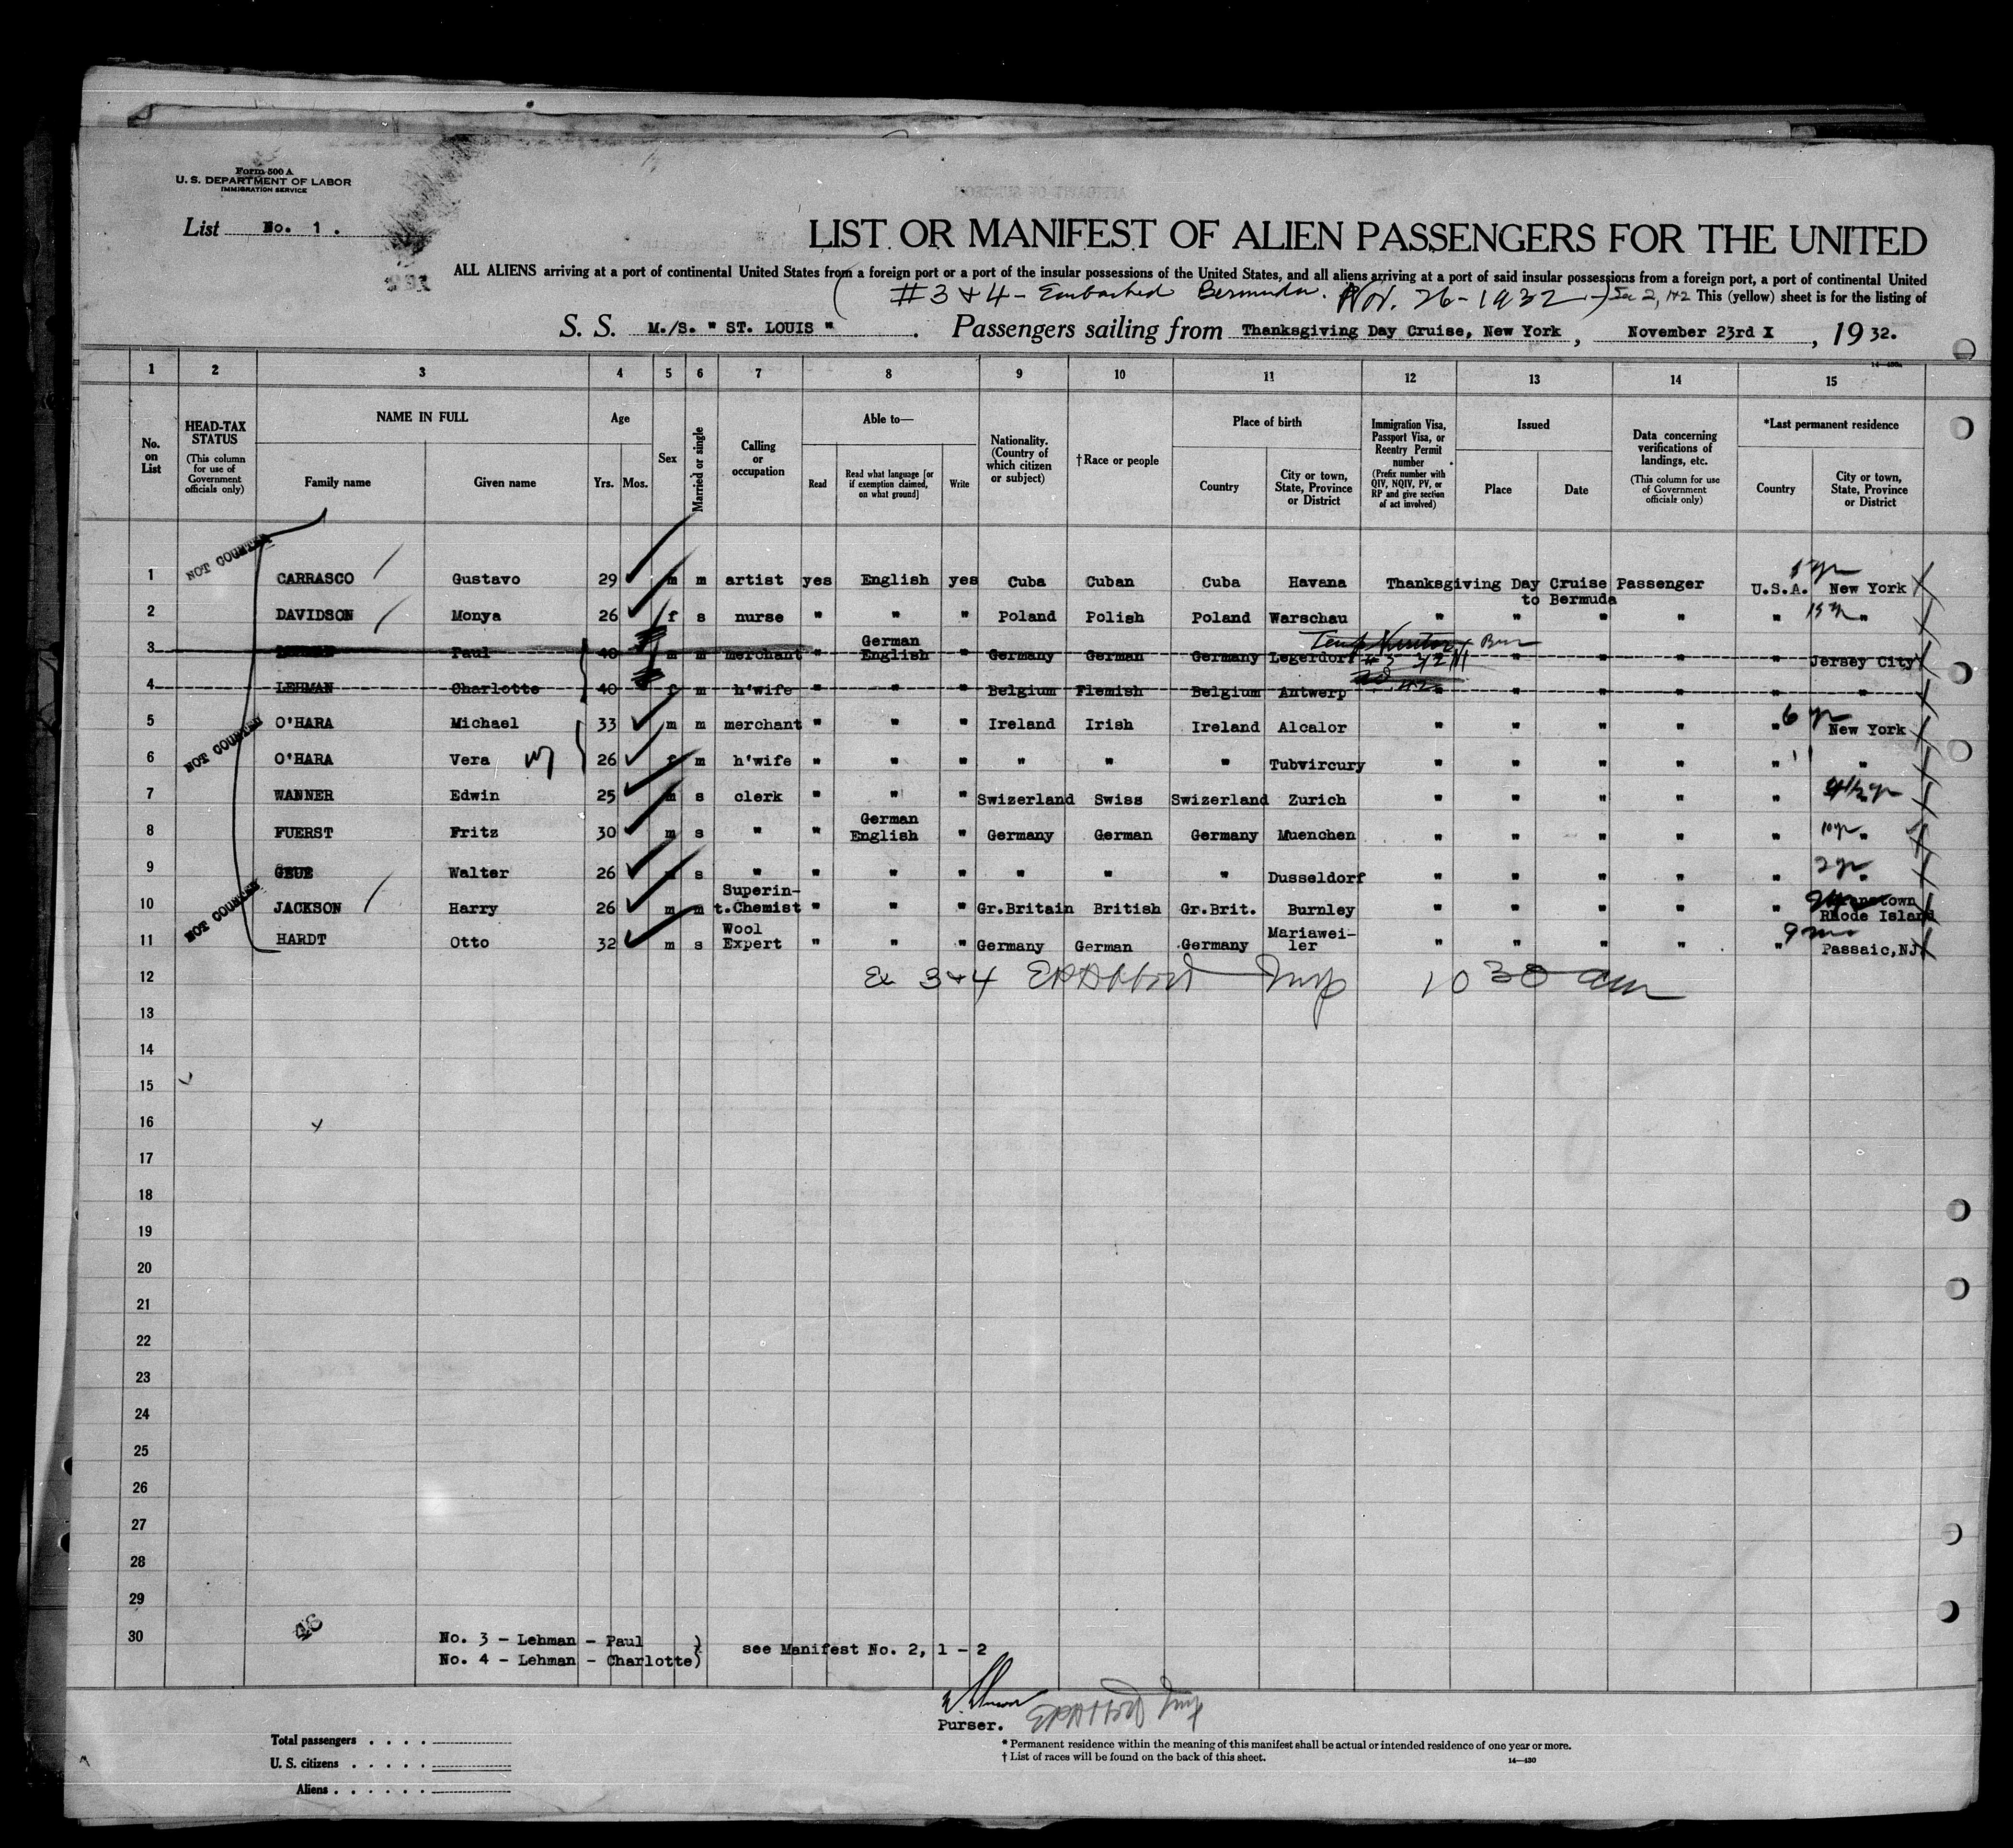 Form 500 A
U. S. DEPARTMENT OF LABOR
IMMIGRATION SERVICE
List No. 1.
LIST OR MANIFEST OF ALIEN PASSENGERS FOR THE UNITED
ALL ALIENS arriving at a port of continental United States from a foreign port or a port of the insular possessions of the United States, and all aliens arriving at a port of said insular possessions from a foreign port, a port of continental United
(#3 & 4 - Embarked Bermuda. Nov. 26 - 1932 -) See 2, 1+2 This (yellow) sheet is for the listing of
S. S. M./S. " ST. LOUIS ". Passengers sailing from Thanksgiving Day Cruise, New York, November 23rd X, 19 32.
14—430a
1 2 3 4 5 6 7 8 9 10 11 12 13 14 15
No. on List
HEAD-TAX STATUS (This column for use of Government officials only)
NAME IN FULL
Family name Given name
Age
Yrs. Mos.
Sex
Married or single
Calling or occupation
Able to—
Read Read what language [or if exemption claimed, on what ground] Write
Nationality. (Country of which citizen or subject)
†Race or people
Place of birth
Country City or town, State, Province or District
Immigration Visa, Passport Visa, or Reentry Permit number (Prefix number with QIV, NQIV, PV, or RP and give section of act involved)
Issued
Place Date
Data concerning verifications of landings, etc. (This column for use of Government officials only)
*Last permanent residence
Country City or town, State, Province or District
NOT COUNTED
1 CARRASCO Gustavo 29 m m artist yes English yes Cuba Cuban Cuba Havana Thanksgiving Day Cruise Passenger U.S.A. New York
to Bermuda
2 DAVIDSON Monya 26 f s nurse " " " Poland Polish Poland Warschau " " " " " "
3 Paul 40 m m merchant " German English " Germany German Germany Legerdorf " " " " Jersey City
4 LEHMAN Charlotte 40 f m h'wife " " " Belgium Flemish Belgium Antwerp " " " " " "
NOT COUNTED
5 O'HARA Michael 33 m m merchant " " " Ireland Irish Ireland Alcalor " " " " " 6 yr New York
6 O'HARA Vera 26 f m h'wife " " " " " " Tubvircury " " " " " "
7 WANNER Edwin 25 m s clerk " " " Swizerland Swiss Swizerland Zurich " " " " "
8 FUERST Fritz 30 m s " " German English " Germany German Germany Muenchen " " " " " 10 yr "
9 GEUE Walter 26 m s " " " " " " " Dusseldorf " " " " " 2 yr "
NOT COUNTED
10 JACKSON Harry 26 m m Superin-t.Chemist " " " Gr.Britain British Gr.Brit. Burnley " " " " " Rhode Island
11 HARDT Otto 32 m s Wool Expert " " " Germany German Germany Mariawei-ler " " " " " 9 mo Passaic,NJ.
12 Ex 3 & 4 Insp 10 30 am
13
14
15
16
17
18
19
20
21
22
23
24
25
26
27
28
29
30
46
No. 3 - Lehman - Paul )
No. 4 - Lehman - Charlotte) see Manifest No. 2, 1 - 2
Purser.
Total passengers . . . .
U. S. citizens . . . . .
Aliens . . . . . .
* Permanent residence within the meaning of this manifest shall be actual or intended residence of one year or more.
† List of races will be found on the back of this sheet.
14—430